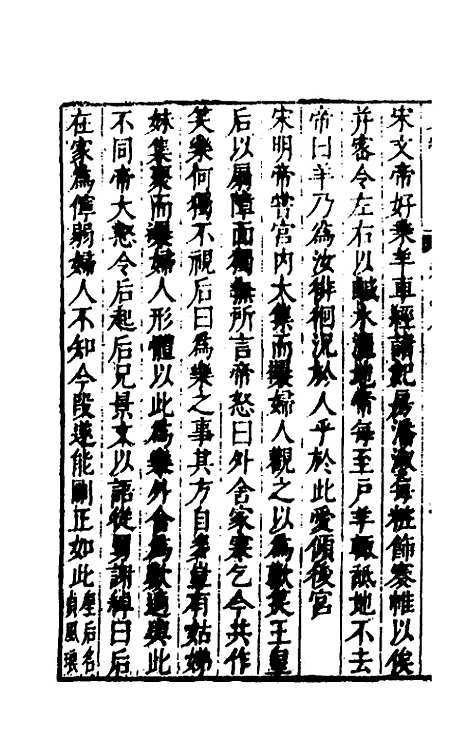 宋文帝好乘羊車經諸妃房潘淑每粧飾褰帷以俟
并密令左右以鹹水灑地帝每至戶羊輒舐地不去
帝曰羊乃爲汝徘徊況於人乎於此愛傾後宮
宋明帝嘗宮內大集而臝婦人觀之以爲歡笑王皇
后以扇障面獨無所言帝怒曰外舍家寒乞今共作
笑樂何獨不視后曰爲樂之事其方自多豈有姑姊
妹集聚而臝婦人形體以此爲樂外舍爲歡適與此
不同帝大怒令后起后兄景文以語從舅謝緯曰后
在家爲儜弱婦人不知今段遂能剛正如此皇后名
貞風琅